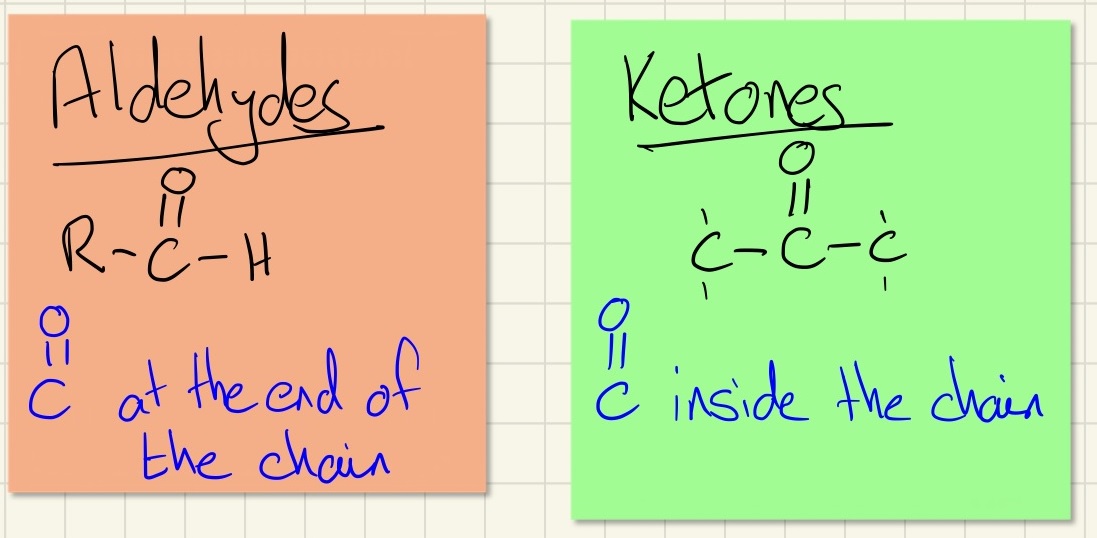 Aldehydes
O
||
R-C-H
O
||
C at the end of
the chain
Ketones
O
||
C-C-C
O
||
C inside the chain